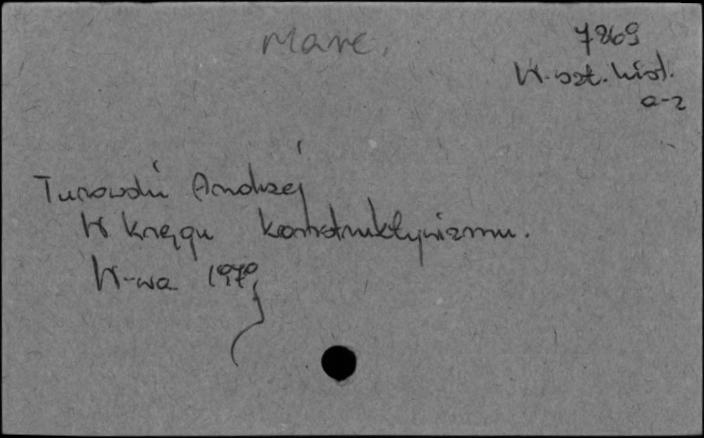 Marc.
7869
W-szt. hist.
a-z
Turowski Andrzej
W kręgu konstruktywizmu.
W-wa 1979